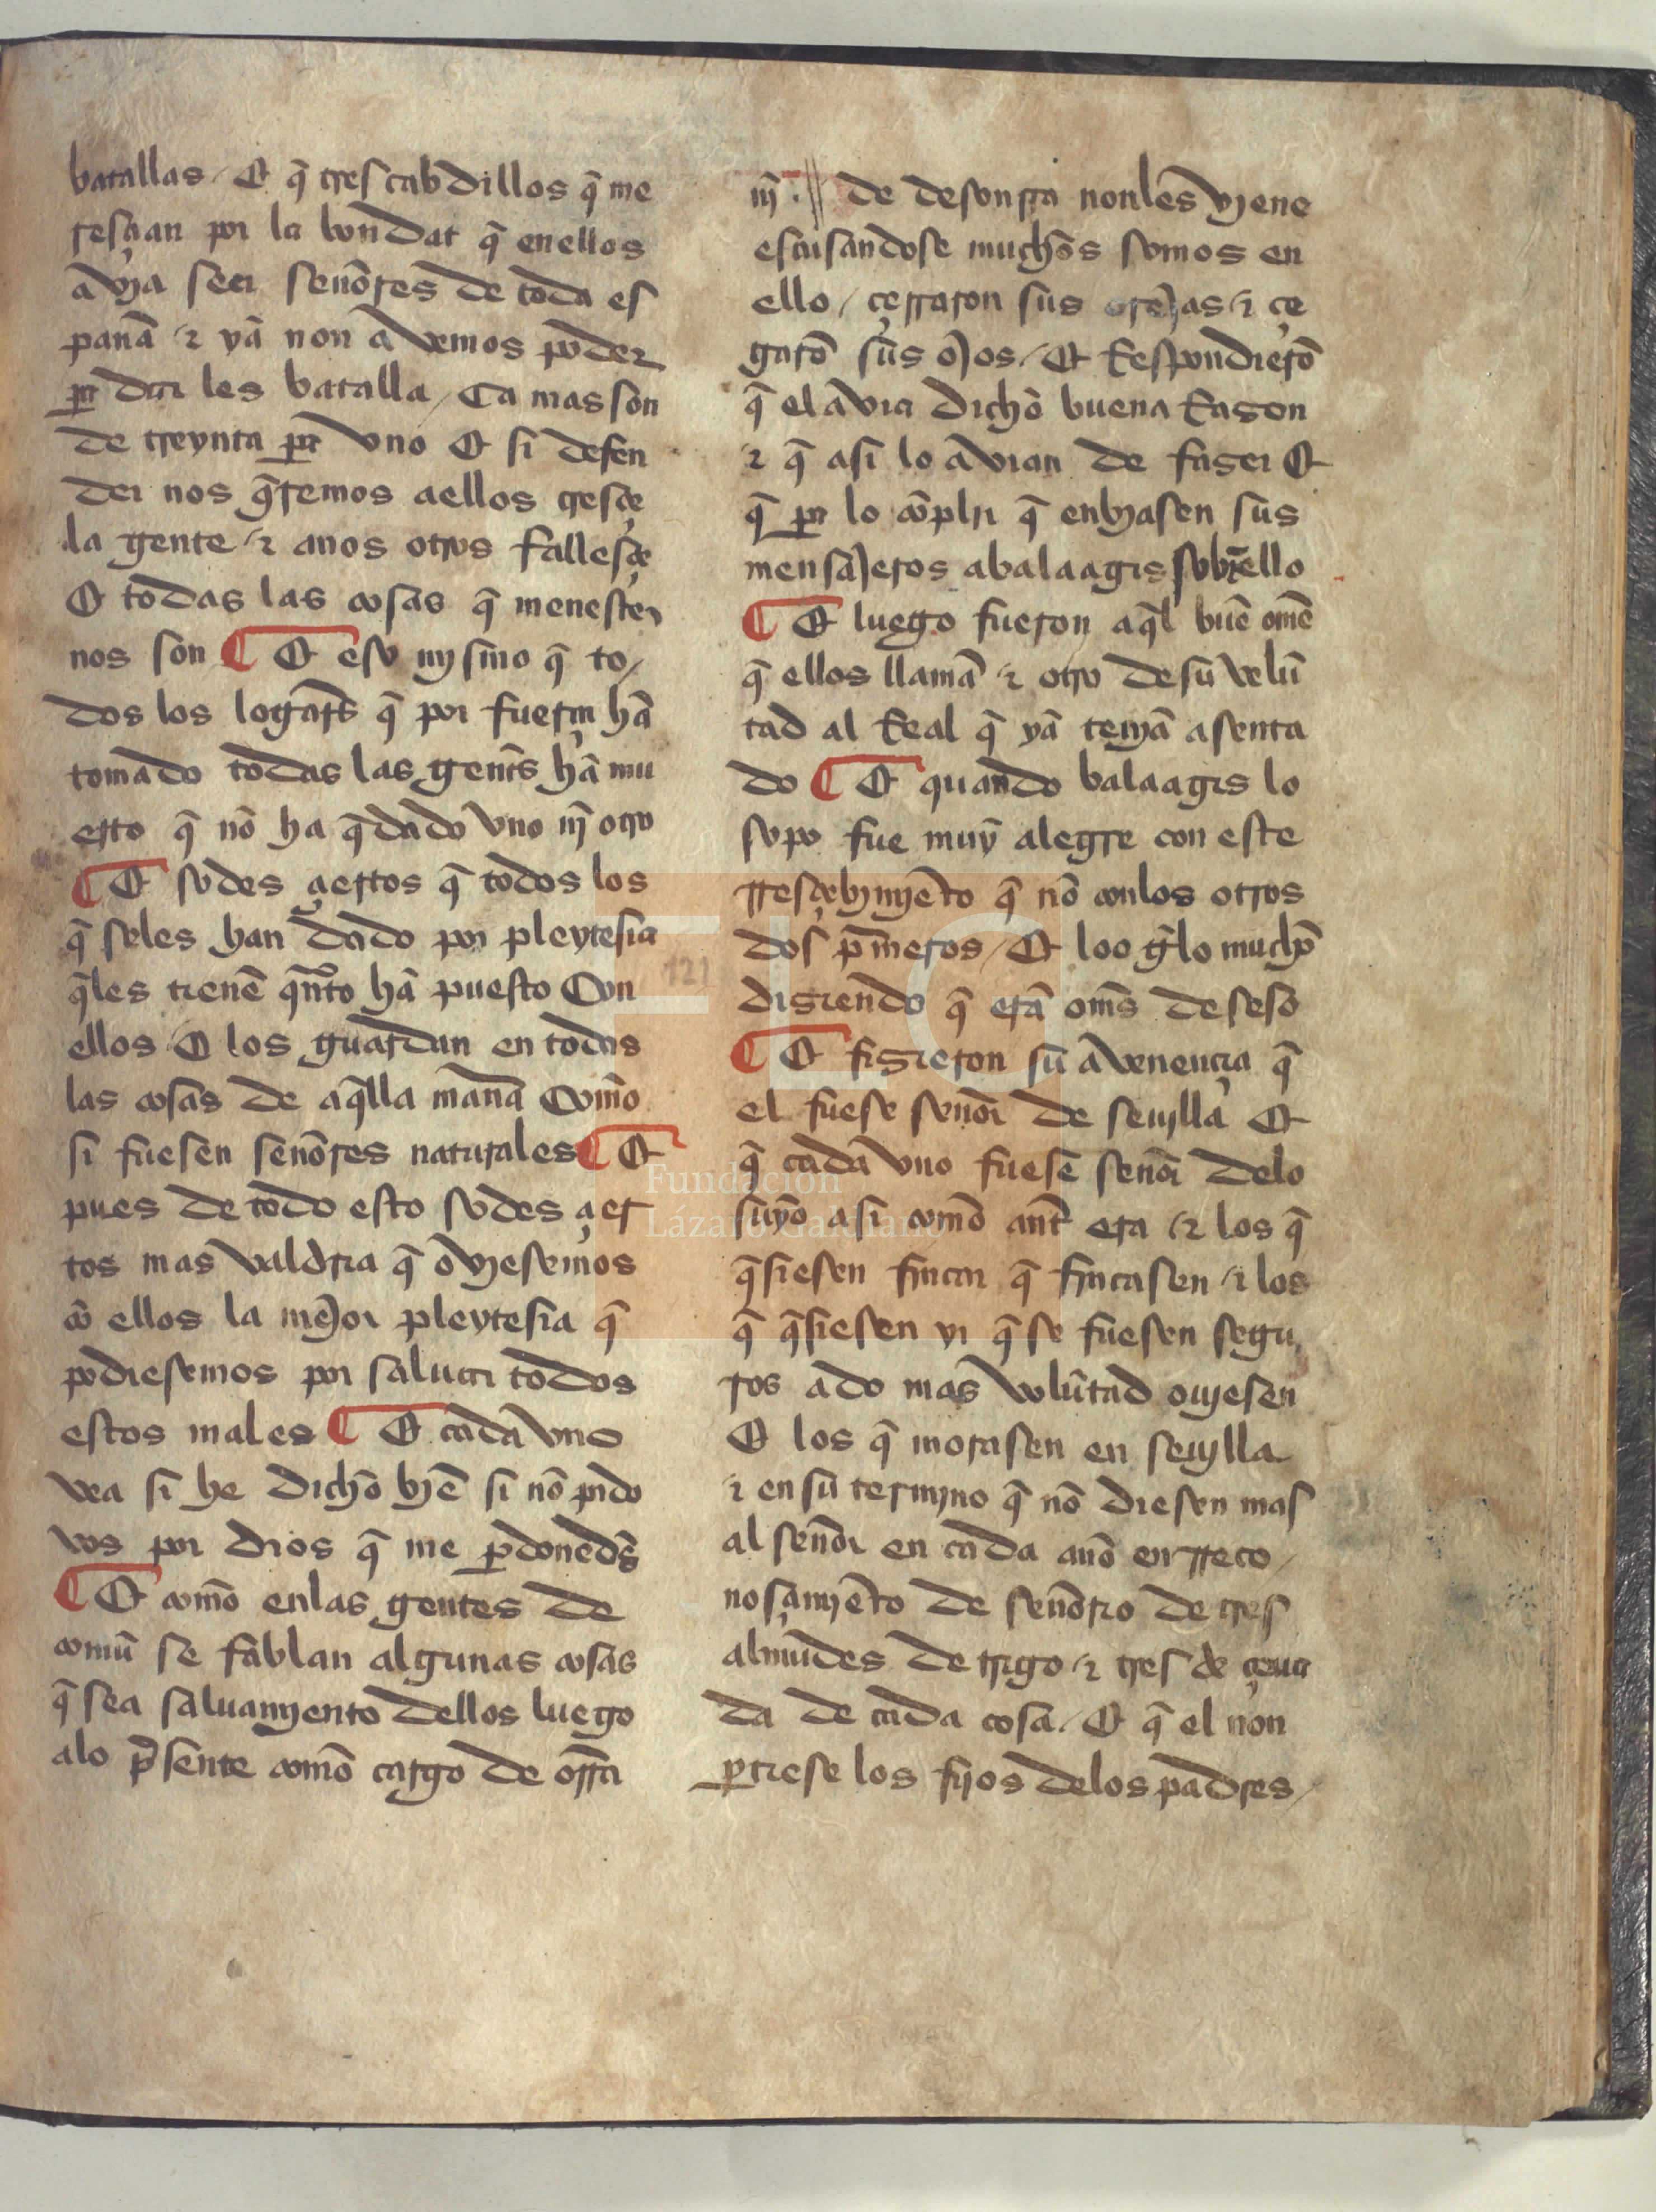 batallas / Et q̃ tres cabdillos q̃ me
resçian por la bondat q̃ en ellos
avya seer señores de toda es
pana ⁊ ya non avemos poder
pa dar les batalla / Ca mas son
de treynta pa vno Et si defen
der nos q̃remos a ellos cresçe
la gente ⁊ a nos otros fallesçe
Et todas las cosas q̃ menester
nos son ¶ Et eso mysmo q̃ to/
dos los logares q̃ por fuerça hã
tomado todas las gentes hã mu
erto q̃ nõ ha q̃dado vno nj̃ otro
¶ Et sodes çiertos q̃ todos los
q̃ se les han dado por pleytesia
q̃ les tienẽ q̃nto hã puesto Con
ellos Et los guardan en todas
las cosas de aq̃lla manã Como
si fuesen señores naturales ¶ Et
pues de todo esto sodes çier
tos mas valdria q̃ ovyesemos
cõ ellos la mejor pleytesia q̃
podiesemos por saluar todos
estos males ¶ Et cada vno
vea si he dicho byẽ si nõ pido
vos por dios q̃ me perdonedes
¶ Et como en las gentes de
comũ se fablan algunas cosas
q̃ sea saluamyento dellos luego
a lo presente como cargo de orra
nj̃ . // de desonrra non les vyene
escusandose muchos somos en
ello / çerraron sus orejas ⁊ çe
garõ sus ojos / Et Respondierõ
q̃ el avia dicho buena Razon
⁊ q̃ asi lo avian de fazer Et
q̃ pa lo cõplir q̃ enbyasen sus
mensajeros a balaagis sobrello
¶ Et luego fueron aq̃l buẽ omẽ
q̃ ellos llamã ⁊ otro de su velũ
tad al Real q̃ ya tenyã asenta
do ¶ Et quando balaagis lo
sopo fue muy alegre con este
rresçebymyẽto q̃ nõ con los otros
dos p̃meros / Et loo gelo mucho
diziendo q̃ erã om̃s de seso
¶ Et fizieron su avenençia q̃
el fuese señor de seujlla Et
q̃ cada vno fuese señor de lo
suyo asi como ant̃ era ⁊ los q̃
q̃siesen fincar q̃ fincasen ⁊ los
q̃ q̃siesen yr q̃ se fuesen segu
ros a do mas volũtad oujesen
Et los q̃ morasen en seujlla
⁊ en su termyno q̃ nõ diesen mas
al señor en cada año en rreco /
nosçamyẽto de señorio de tres
almudes de trigo ⁊ tres de çeua
da de cada cosa / Et q̃ el non
partiese los fijos de los padres /
121
FLG
Fundación
Lázaro Galdiano